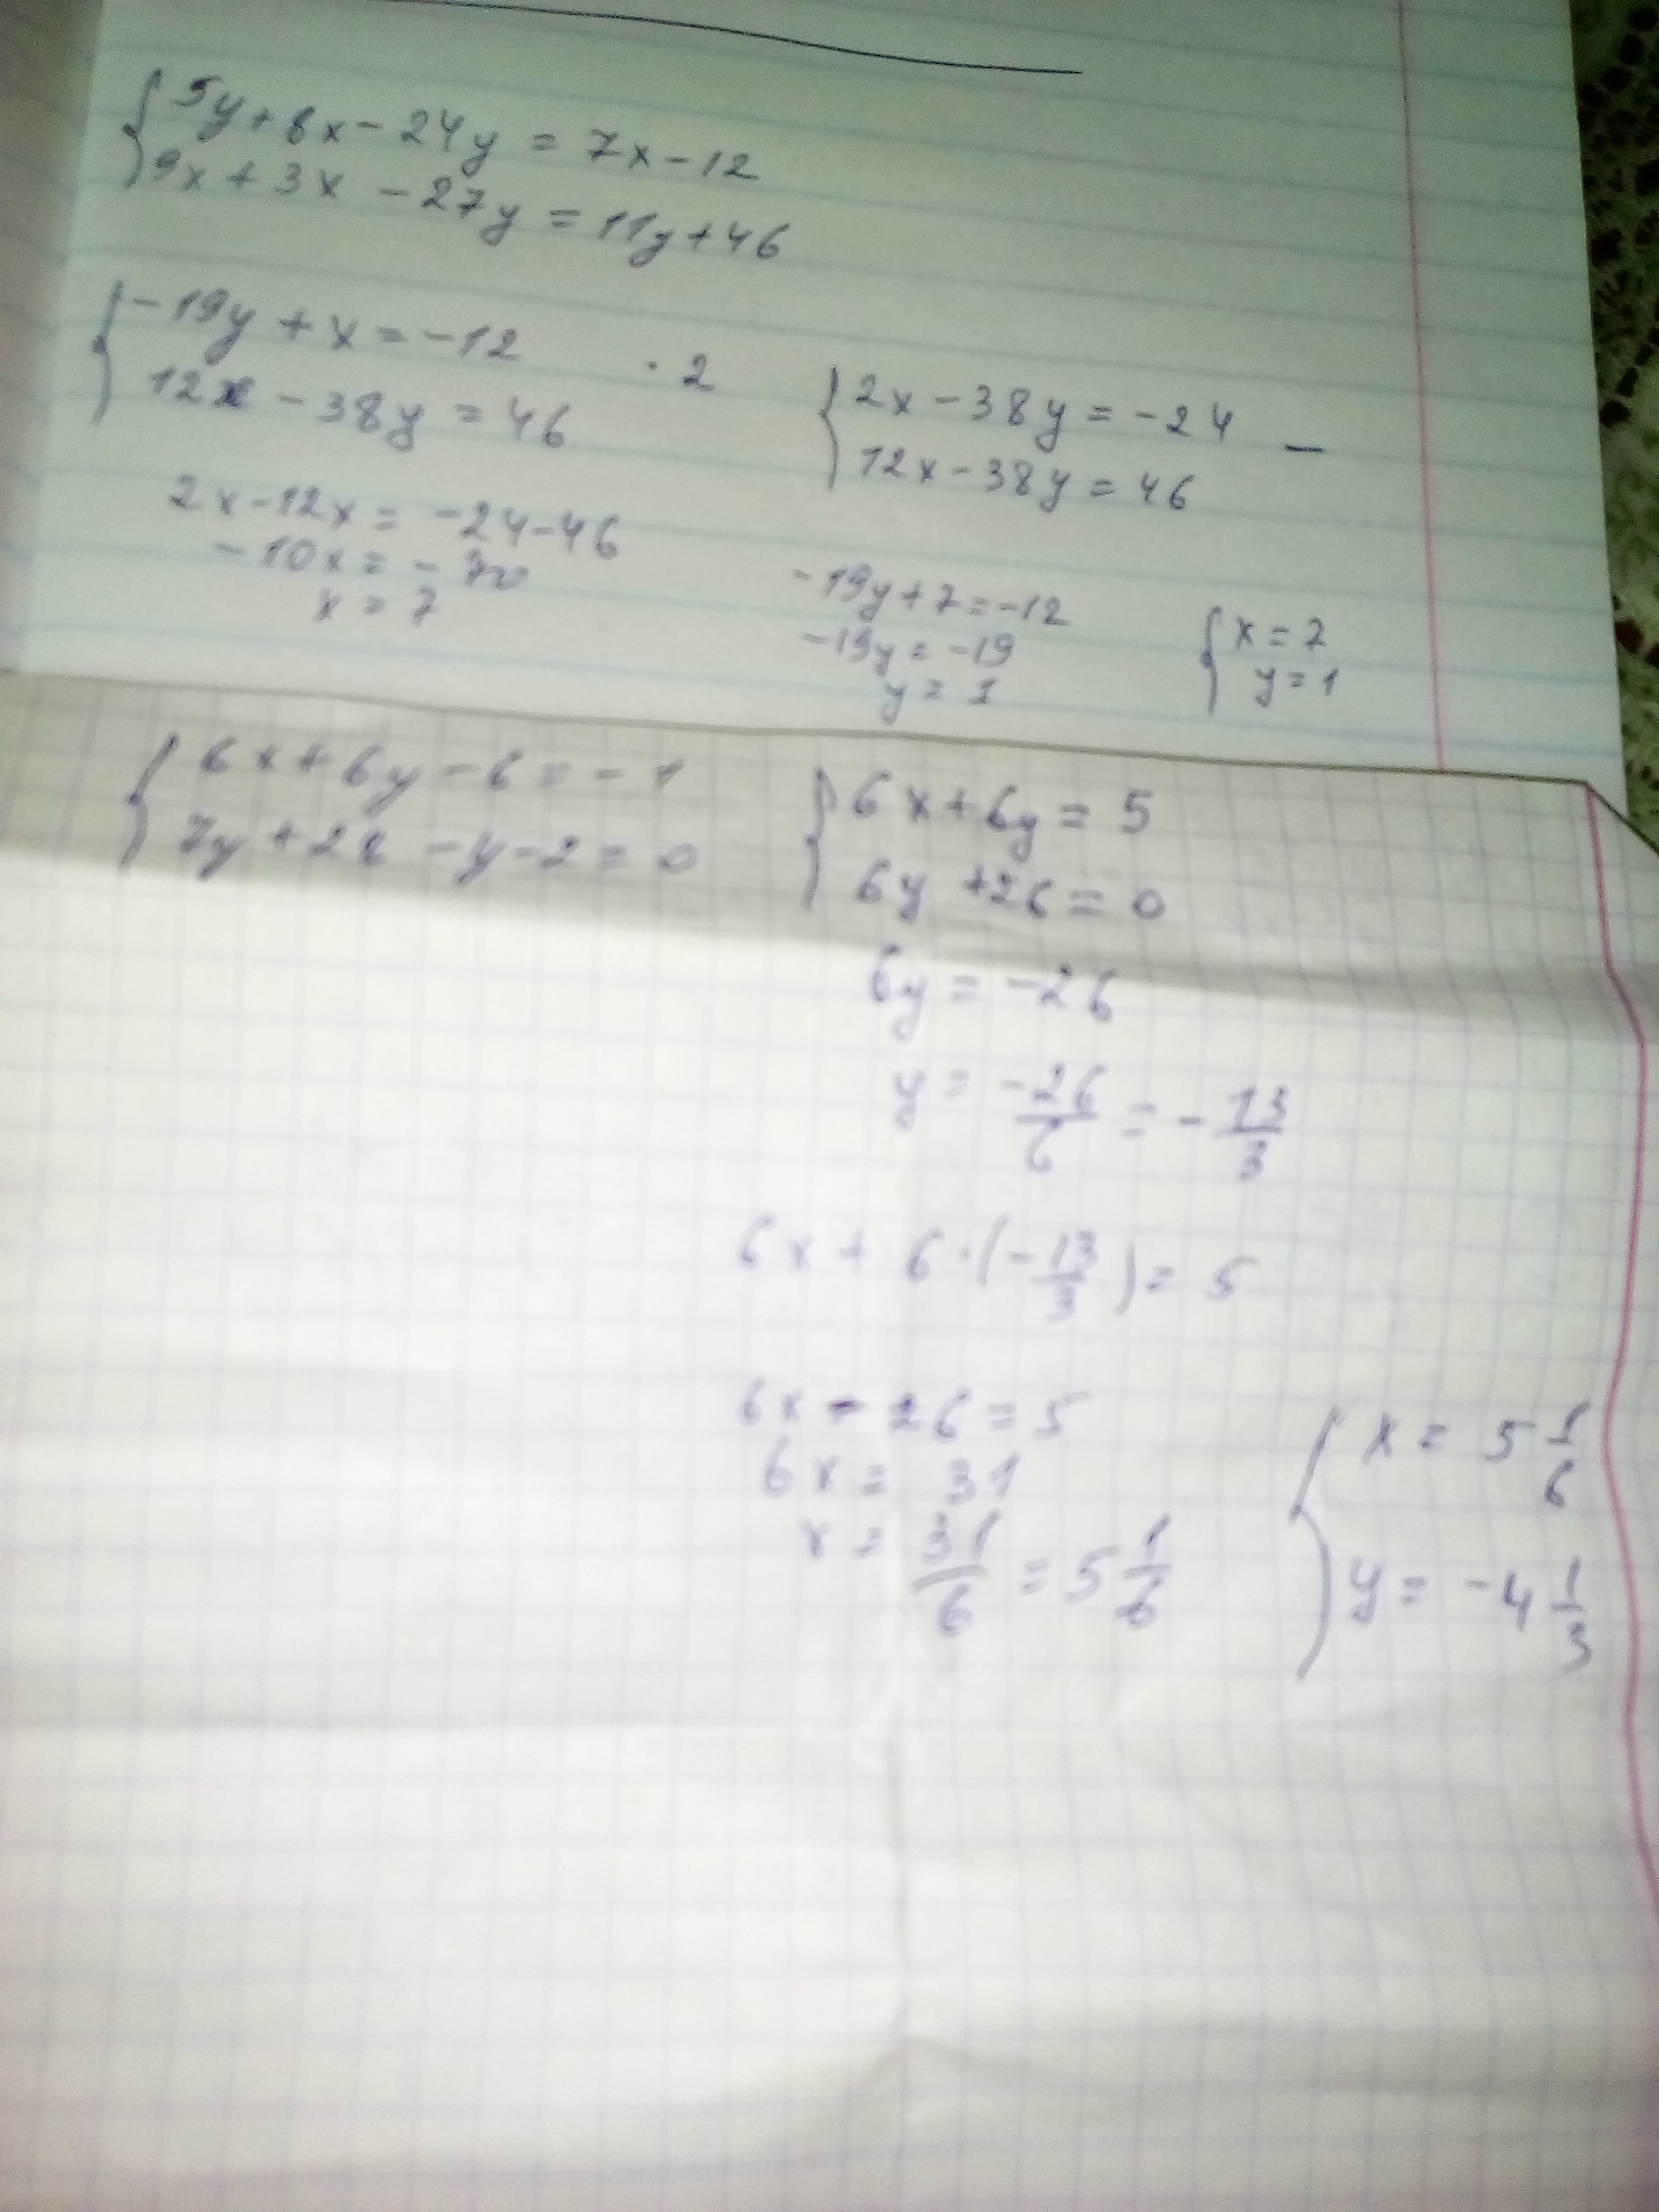 {5y + 8x - 24y = 7x - 12
9x + 3x - 27y = 11y + 46
{-19y + x = -12 · 2
12x - 38y = 46
{2x - 38y = -24 —
12x - 38y = 46
2x - 12x = -24 - 46
-10x = -70
x = 7
-19y + 7 = -12
-19y = -19
y = 1
{x = 7
y = 1
{6x + 6y - 6 = -1
7y + 28 - y - 2 = 0
{6x + 6y = 5
6y + 26 = 0
6y = -26
y = -26/6 = -13/3
6x + 6 · (-13/3) = 5
6x - 26 = 5
6x = 31
x = 31/6 = 5 1/6
{x = 5 1/6
y = -4 1/3